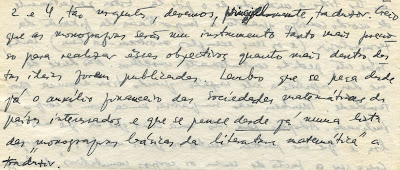 2 e 4, tão urgente, devemos, principalmente, traduzir. Creio
que as monografias serão um instrumento tanto mais precio
so para realizar êsses objectivos quanto mais dentro des
tas ideias forem publicadas. Lembro que se peça desde
já o auxílio financeiro das Sociedades matemáticas de
países interessados e que se pense desde já numa lista
das "monografias básicas da literatura matemática" a
traduzir.